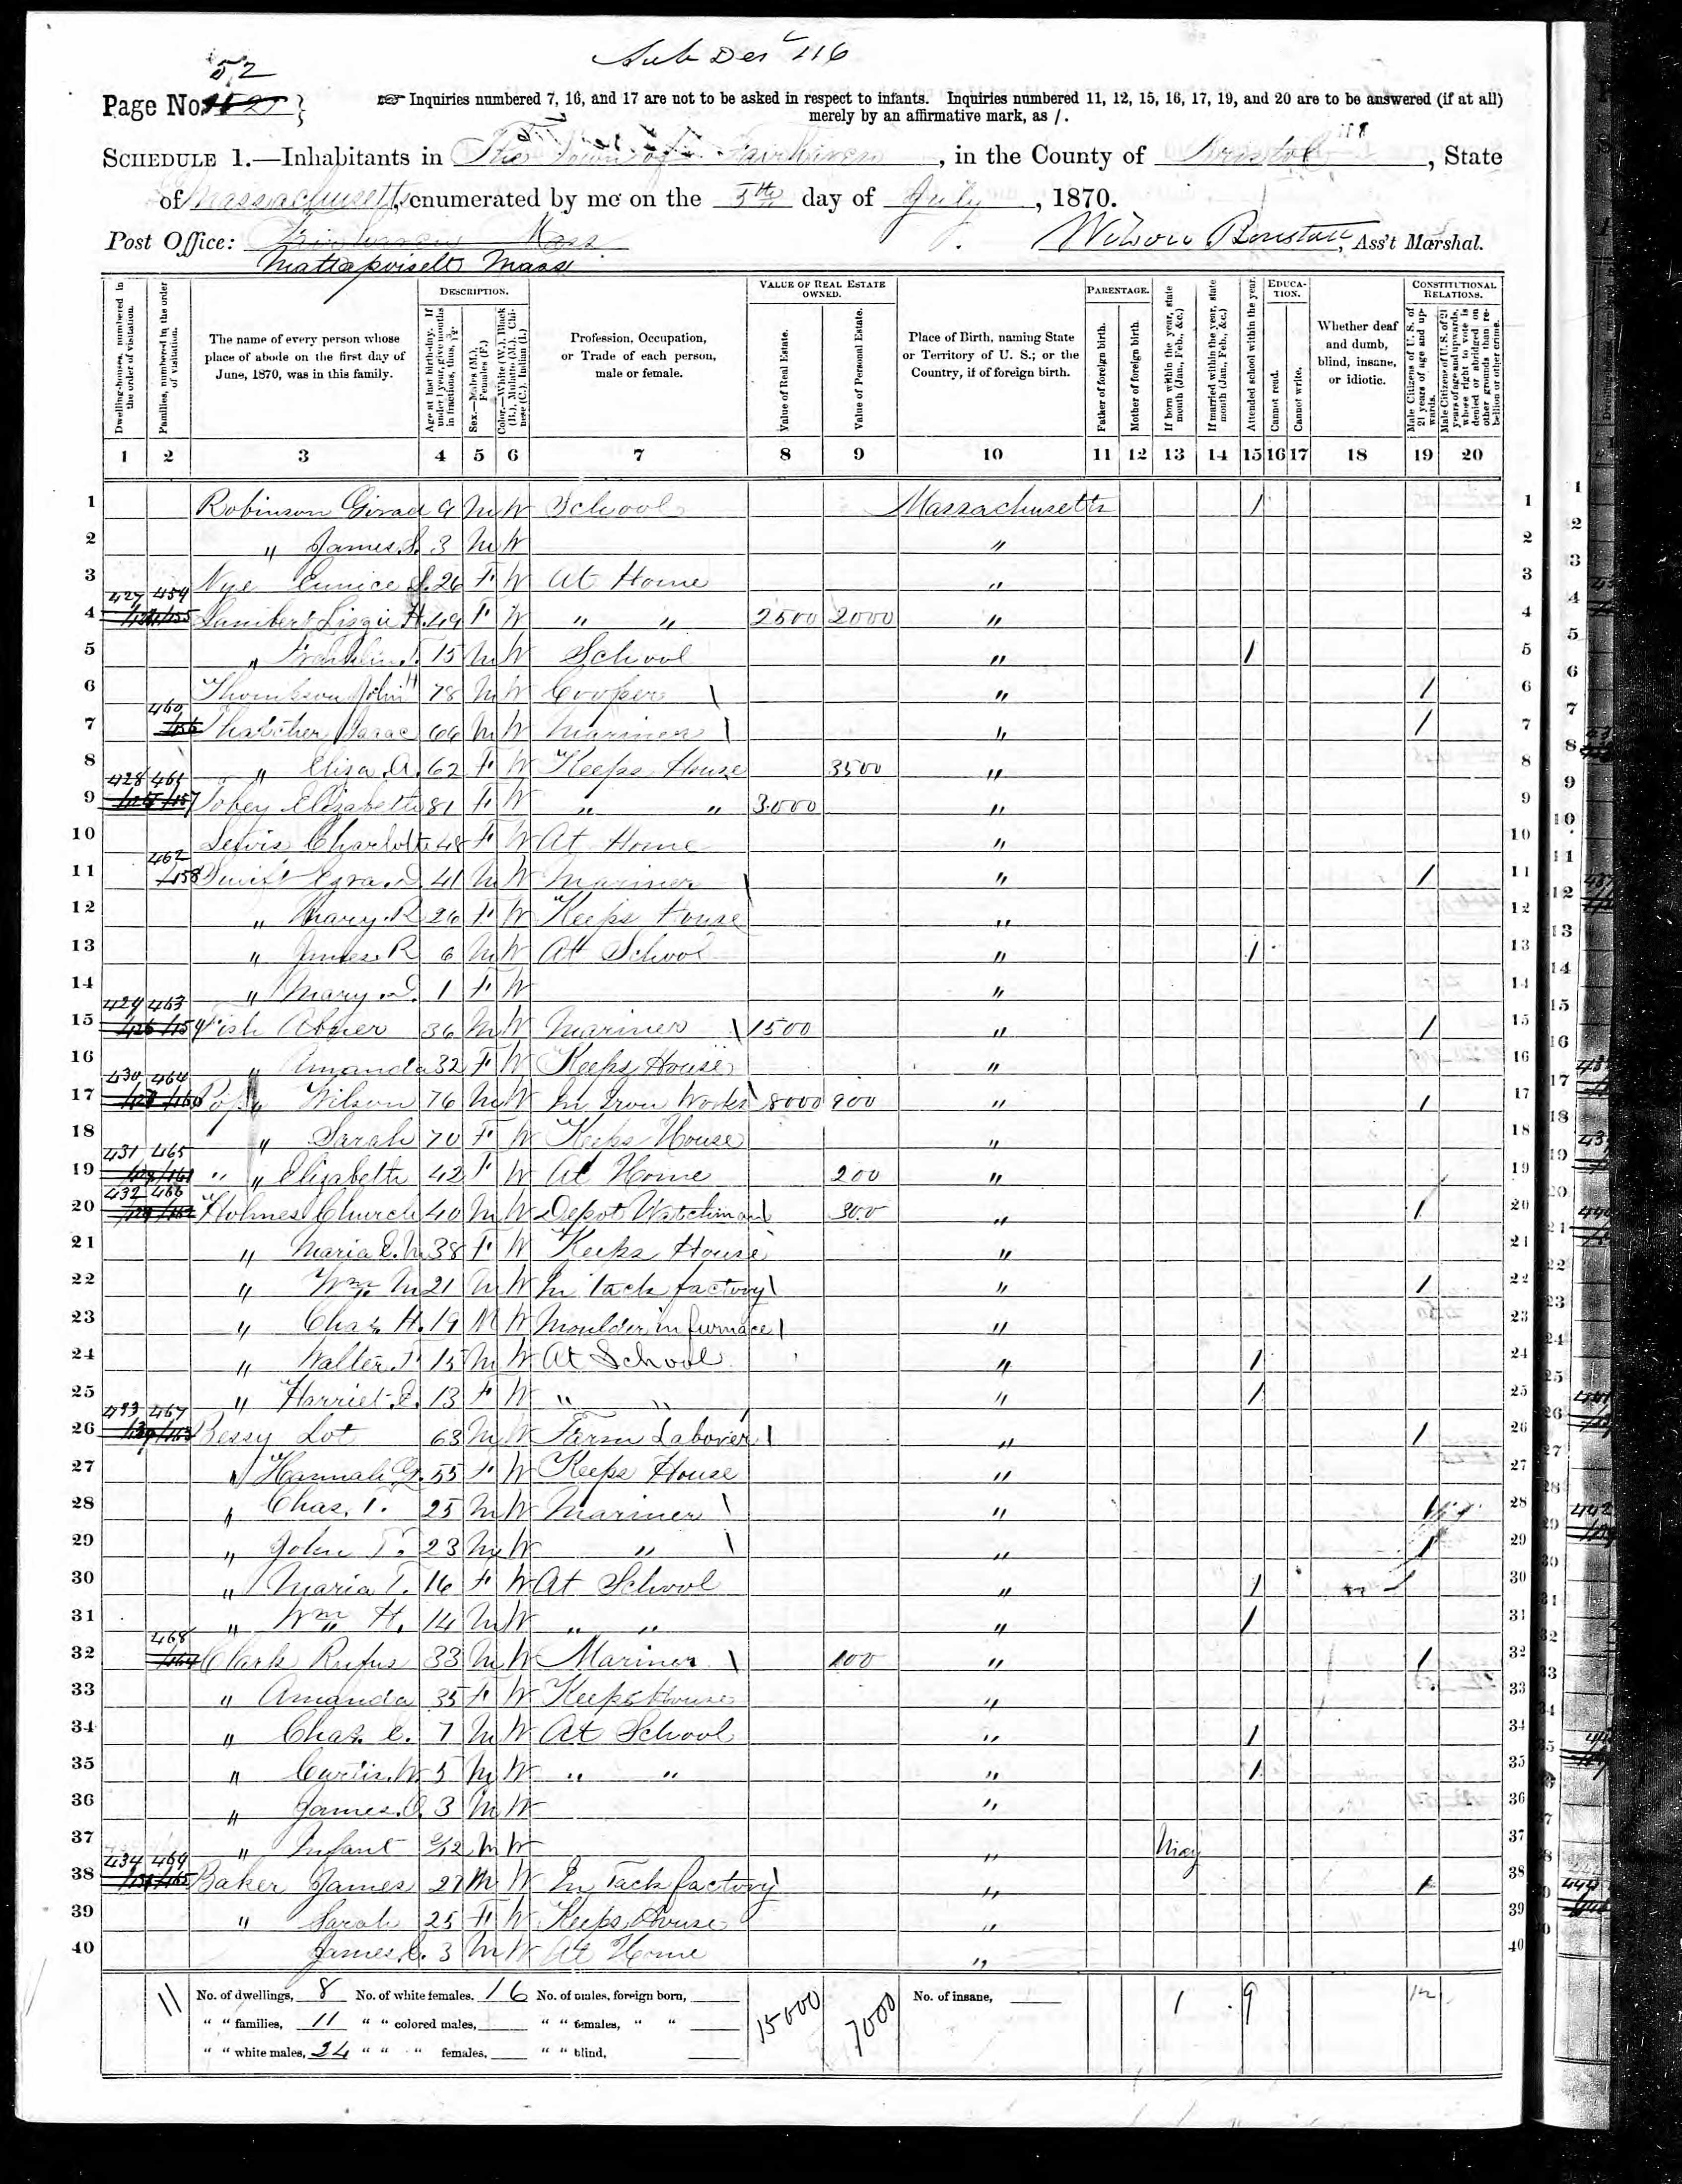 Sub Des 116
52
Page No.
☞ Inquiries numbered 7, 16, and 17 are not to be asked in respect to infants. Inquiries numbered 11, 12, 15, 16, 17, 19, and 20 are to be answered (if at all)
merely by an affirmative mark, as /.
SCHEDULE 1.—Inhabitants in The Town of Fairhaven, in the County of Bristol, State
of Massachusetts, enumerated by me on the 5th day of July, 1870.
Post Office: Fairhaven Mass
Mattapoisett Mass
Ass't Marshal.
Dwelling-houses, numbered in the order of visitation.
Families, numbered in the order of visitation.
The name of every person whose place of abode on the first day of June, 1870, was in this family.
DESCRIPTION.
Age at last birth-day. If under 1 year, give months in fractions, thus, 3/12.
Sex.—Males (M.), Females (F.)
Color.—White (W.), Black (B.), Mulatto (M.), Chinese (C.), Indian (I.)
Profession, Occupation, or Trade of each person, male or female.
VALUE OF REAL ESTATE OWNED.
Value of Real Estate.
Value of Personal Estate.
Place of Birth, naming State or Territory of U. S.; or the Country, if of foreign birth.
PARENTAGE.
Father of foreign birth.
Mother of foreign birth.
If born within the year, state month (Jan., Feb., &c.)
If married within the year, state month (Jan., Feb., &c.)
Attended school within the year.
EDUCATION.
Cannot read.
Cannot write.
Whether deaf and dumb, blind, insane, or idiotic.
CONSTITUTIONAL RELATIONS.
Male Citizens of U. S. of 21 years of age and upwards.
Male Citizens of U. S. of 21 years of age and upwards, whose right to vote is denied or abridged on other grounds than rebellion or other crime.
1 2 3 4 5 6 7 8 9 10 11 12 13 14 15 16 17 18 19 20
1 Robinson Girad 9 M W School Massachusetts / 1
2 " James S. 3 M W " 2
3 Nye Eunice S. 26 F W At Home " 3
427 459
4 Lambert Lizzie H. 49 F W " " 2500 2000 " 4
5 " Franklin T. 15 M W School " / 5
6 Thompson John H 78 M W Cooper \ " / 6
460
7 Thatcher Isaac 66 M W Mariner \ " / 7
8 " Eliza A. 62 F W Keeps House 3500 " 8
428 461
9 Tobey Elizabeth 81 F W " " 3000 " 9
10 Lewis Charlotte 48 F W At Home " 10
462
11 Swift Ezra D. 41 M W Mariner \ " / 11
12 " Mary R 26 F W Keeps House " 12
13 " James R 6 M W At School " / 13
14 " Mary D. 1 F W " 14
429 463
15 Fish Abner 36 M W Mariner \ 1500 " / 15
16 " Amanda 32 F W Keeps House " 16
430 464
17 Pope Wilson 76 M W In Iron Works \ 8000 900 " / 17
18 " Sarah 70 F W Keeps House " 18
431 465
19 " " Elizabeth 42 F W At Home 200 " 19
432 466
20 Holmes Church 40 M W Depot Watchman \ 300 " / 20
21 " Maria E. N. 38 F W Keeps House " 21
22 " Wm M 21 M W In Tack factory \ " / 22
23 " Chas. H. 19 M W Moulder in furnace \ " 23
24 " Walter T. 15 M W At School " / 24
25 " Harriet E. 13 F W " " " / 25
433 467
26 Bessy Lot 63 M W Farm Laborer \ " / 26
27 " Hannah G. 55 F W Keeps House " 27
28 " Chas. T. 25 M W Mariner \ " / 28
29 " John T. 23 M W " \ " / 29
30 " Maria T. 16 F W At School " / 30
31 " Wm H. 14 M W " " " / 31
468
32 Clark Rufus 33 M W Mariner \ 100 " / 32
33 " Amanda 35 F W Keeps House " 33
34 " Chas. E. 7 M W At School " / 34
35 " Curtis W 5 M W " " " / 35
36 " James O. 3 M W " 36
37 " Infant 2/12 M W " May 37
434 469
38 Baker James 27 M W In Tack factory \ " / 38
39 " Sarah 25 F W Keeps House " 39
40 James E. 3 M W At Home " 40
11 No. of dwellings, 8 No. of white females, 16 No. of males, foreign born, 15000 7000 No. of insane, 1 9 12
" " families, 11 " " colored males, " " females, " "
" " white males, 24 " " " females, " " blind,